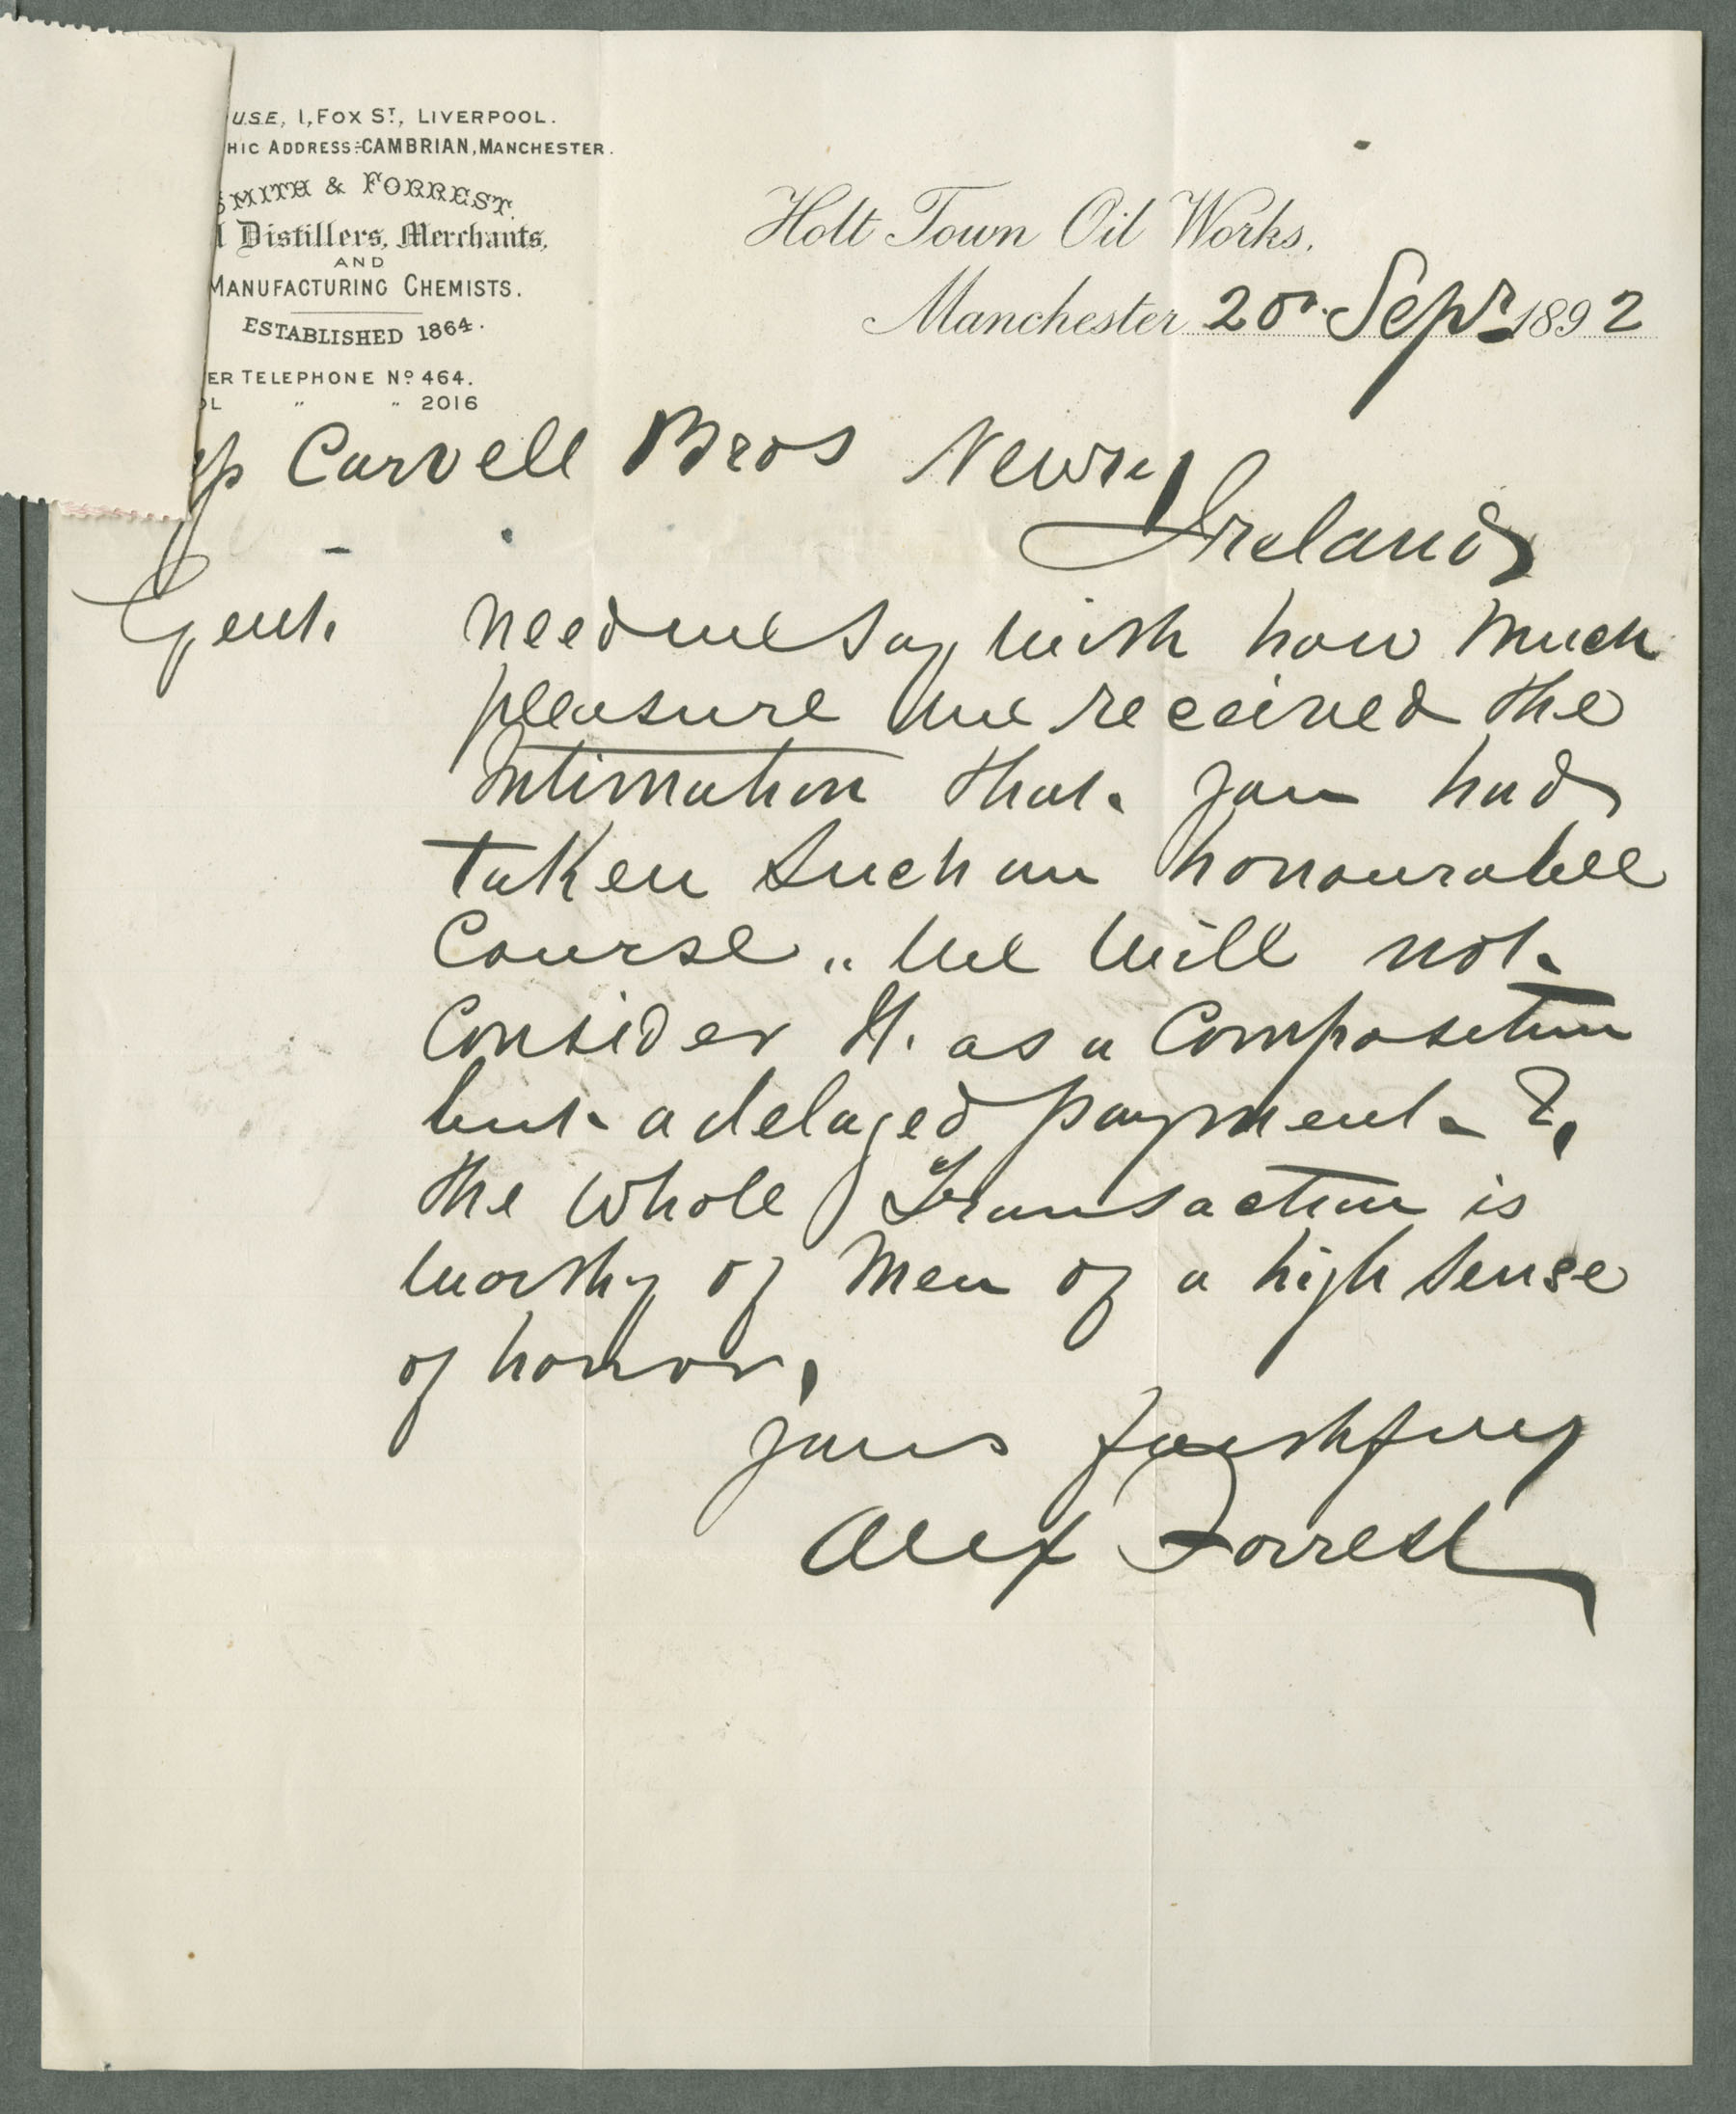 USE, 1, FOX ST, LIVERPOOL.
HIC ADDRESS:-CAMBRIAN, MANCHESTER.
SMITH & FORREST.
Distillers, Merchants,
AND
MANUFACTURING CHEMISTS.
ESTABLISHED 1864.
ER TELEPHONE No 464.
OL " " 2016
Holt Town Oil Works.
Manchester 20 Sepr 1892
Carvell Bros Newry
Ireland
Gent. need we say with how much
pleasure we received the
Intimation that you had
taken such an honourable
Course .. We will not
Consider It as a Composition
but a delayed payment &,
the whole Transaction is
worthy of Men of a high sense
of honor,
yours faithfully
Alex Forrest